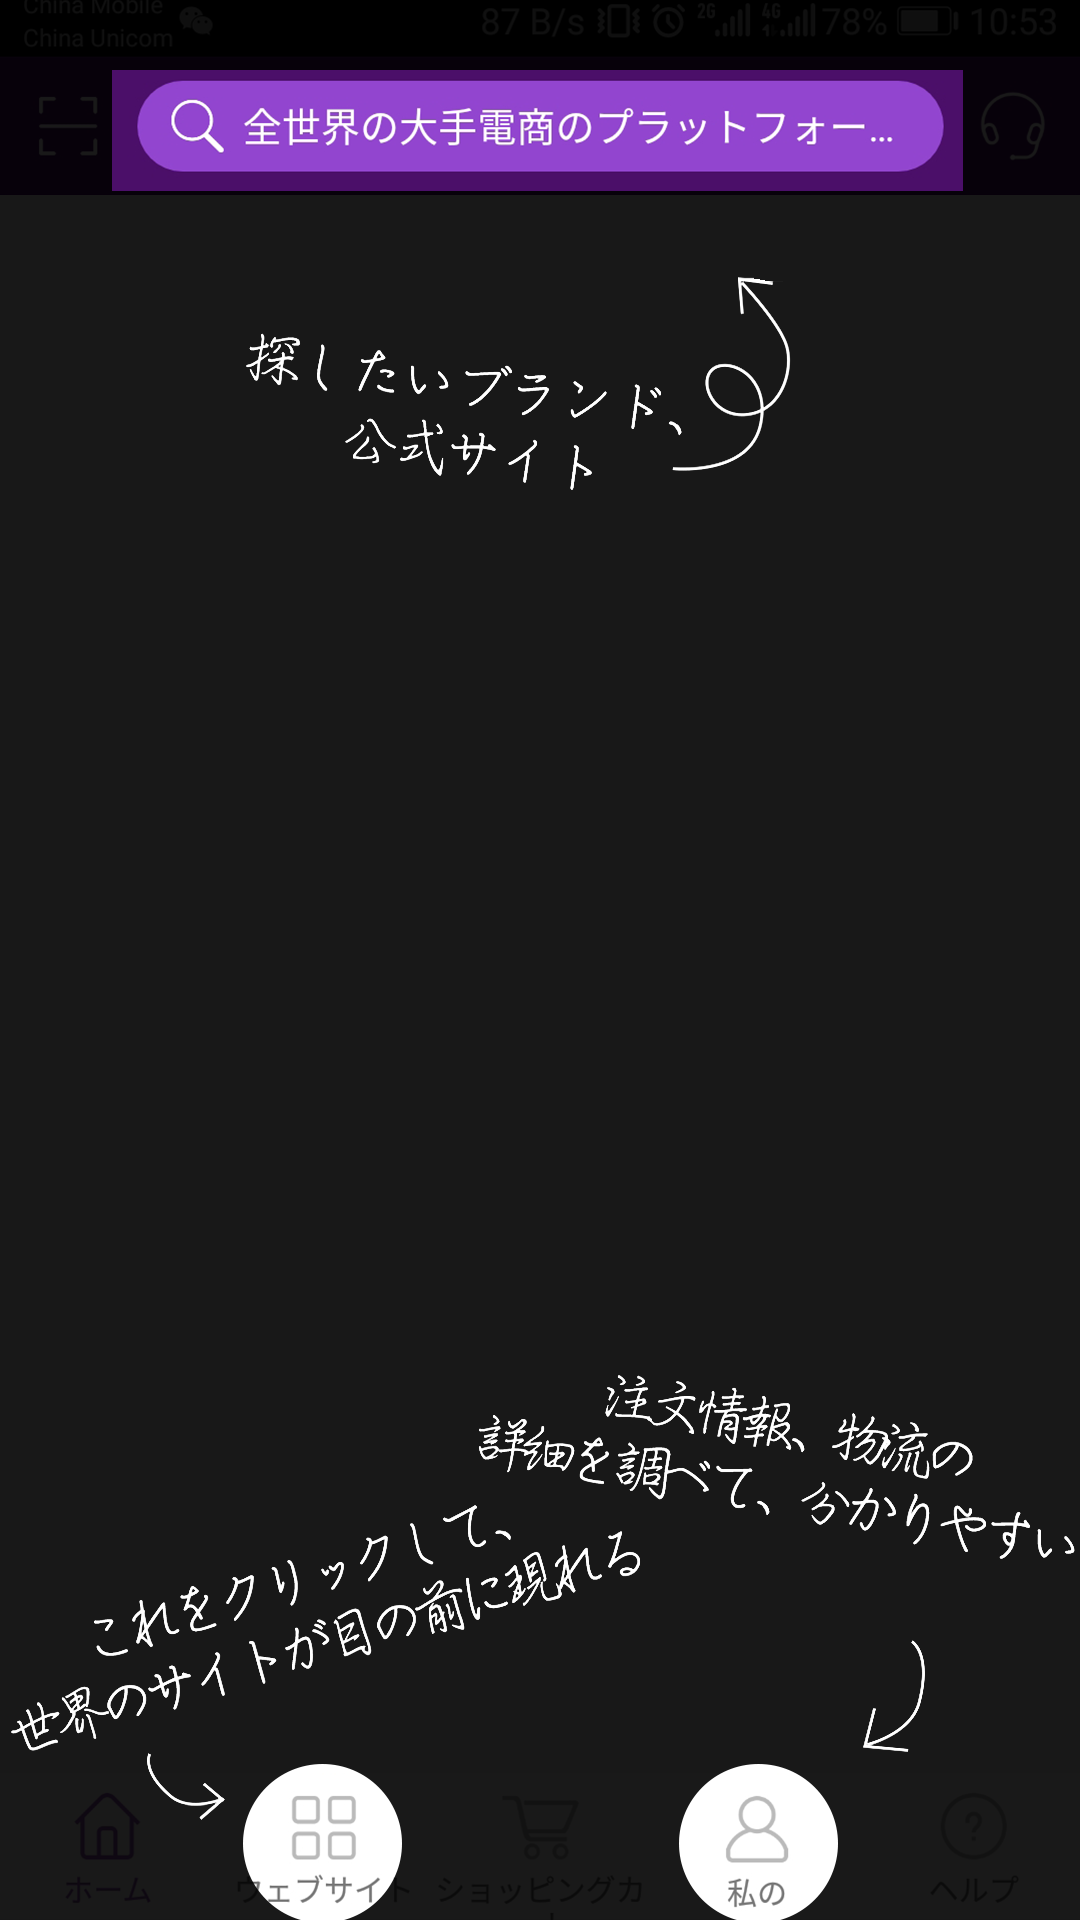 China Mobile
China Unicom
87 B/s
2G
4G
78%
10:53
全世界の大手電商のプラットフォー...
探したいブランド、
公式サイト
注文情報、物流の
詳細を調べて、分かりやすい
これをクリックして、
世界のサイトが目の前に現れる
ホーム
ウェブサイト
ショッピングカ
私の
ヘルプ